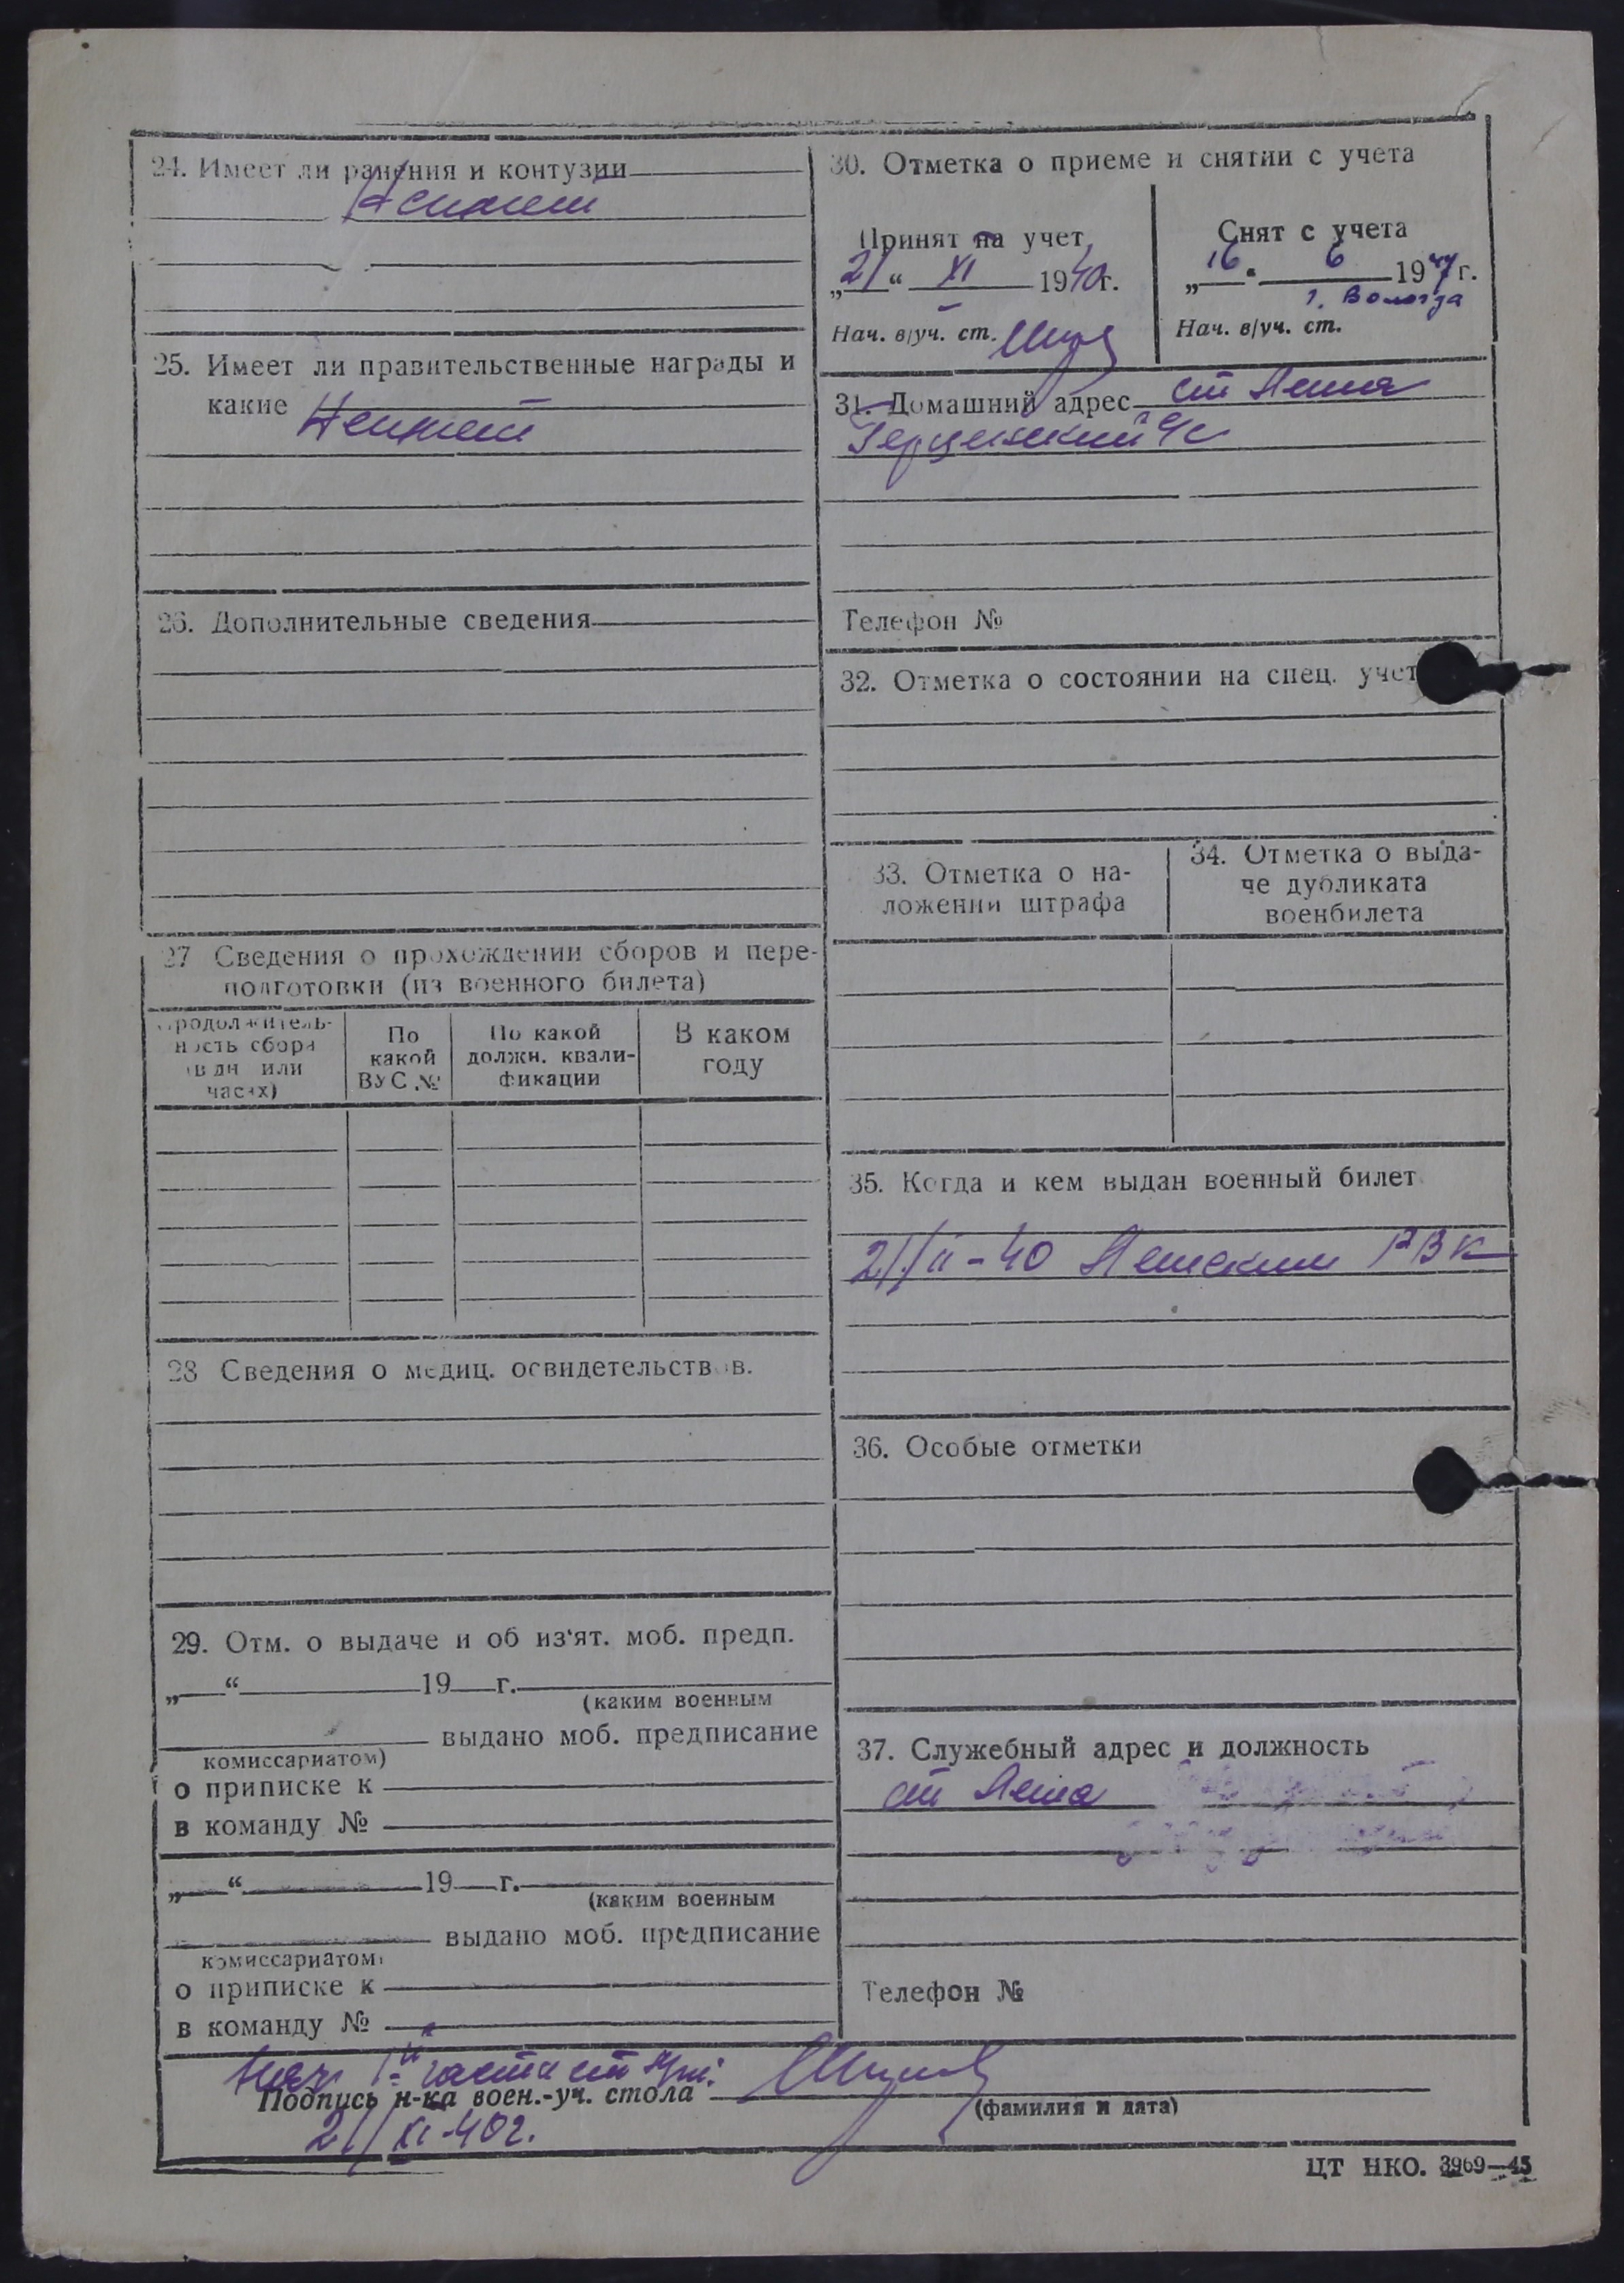 24. Имеет ли ранения и контузии
Неимеет
25. Имеет ли правительственные награды и
какие Неимеет
26. Дополнительные сведения
27 Сведения о прохождении сборов и пере-
подготовки (из военного билета)
Продолжитель-
ность сбора
(в дн или
часах)
По
какой
ВУС №
По какой
должн. квали-
фикации
В каком
году
28 Сведения о медиц. освидетельствов.
29. Отм. о выдаче и об из‘ят. моб. предп.
„ “ 19 г.
(каким военным
выдано моб. предписание
комиссариатом)
о приписке к
в команду №
„ “ 19 г.
(каким военным
выдано моб. предписание
комиссариатом)
о приписке к
в команду №
30. Отметка о приеме и снятии с учета
Принят на учет
„21“ XI 1940г.
Нач. в/уч. ст.
Снят с учета
„16 “ 6 1947г.
г. Вологда
Нач. в/уч. ст.
31. Домашний адрес ст Яеша
Телефон №
32. Отметка о состоянии на спец. учет
33. Отметка о на-
ложении штрафа
34. Отметка о выда-
че дубликата
военбилета
35. Когда и кем выдан военный билет
21/II-40 РВК
36. Особые отметки
37. Служебный адрес и должность
ст Яеша
Телефон №
Нач 1й части
Подпись н-ка воен.-уч. стола
(фамилия и дата)
21/XI-40г.
ЦТ НКО. 3969—45